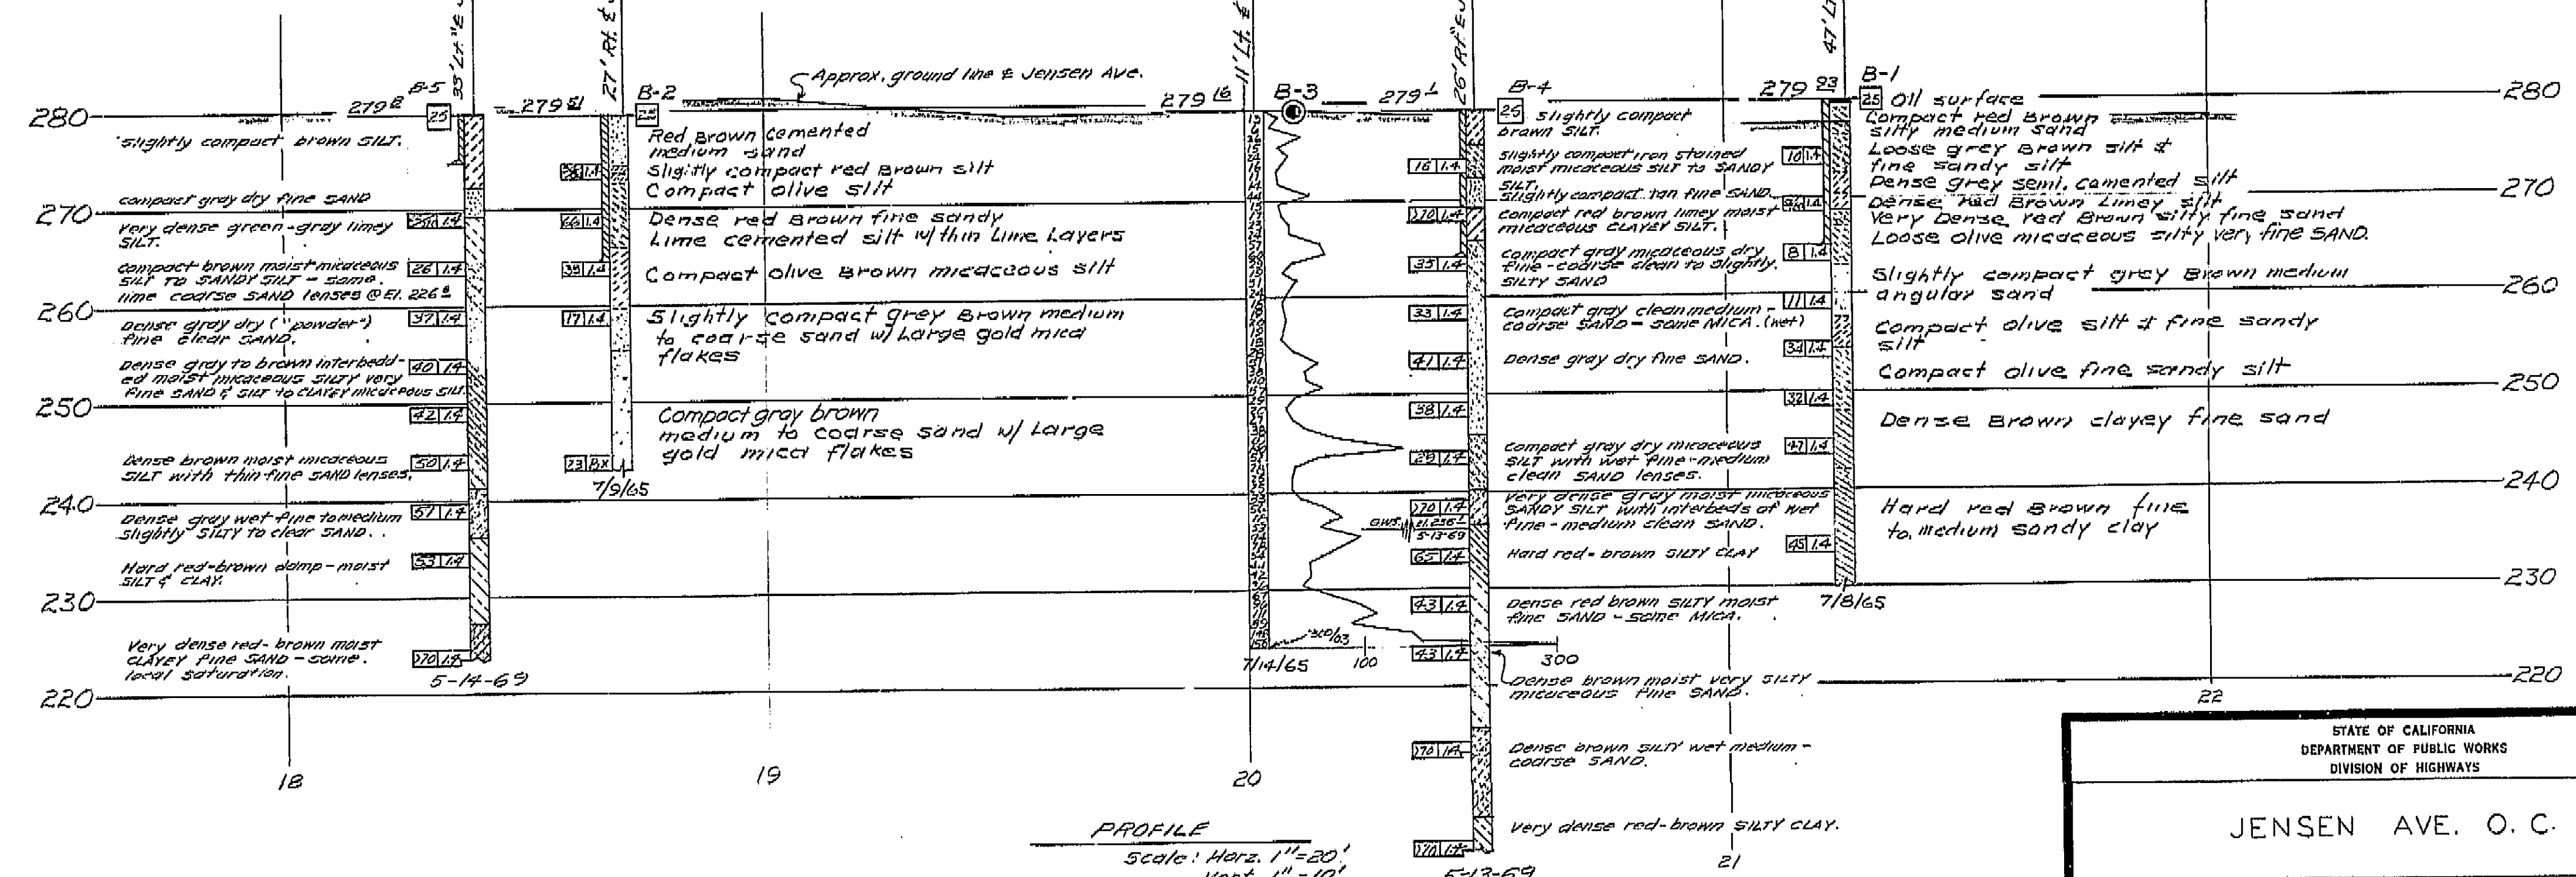 33' Lt. "E"
27' Rt. ℄
11' Lt. ℄
26' Rt. "E"
47' Lt.
Approx. ground line ℄ Jensen Ave.
B-5
279 8
25
279 51
B-2
279 16
B-3
279 1
B-4
25
279 93
B-1
25
280
270
260
250
240
230
220
280
270
260
250
240
230
220
slightly compact brown SILT.
compact gray dry fine SAND
very dense green-gray limey
SILT.
compact brown moist micaceous
SILT TO SANDY SILT - some.
lime coarse SAND lenses @ El. 226 8
Dense gray dry ("powder")
fine clear SAND.
Dense gray to brown interbedd-
ed moist micaceous SILTY very
fine SAND & SILT to CLAYEY micaceous SILT.
Dense brown moist micaceous
SILT with thin fine SAND lenses.
Dense gray wet fine to medium
slightly SILTY to clear SAND.
Hard red-brown damp-moist
SILT & CLAY.
Very dense red-brown moist
CLAYEY fine SAND - some.
local saturation.
26 1.4
37 1.4
40 1.4
42 1.4
50 1.4
57 1.4
53 1.4
>70 1.4
5-14-69
Red Brown cemented
medium sand
Slightly compact red Brown silt
Compact olive silt
Dense red Brown fine sandy
Lime cemented silt w/thin Lime Layers
Compact olive Brown micaceous silt
Slightly compact grey Brown medium
to coarse sand w/ Large gold mica
flakes
Compact gray brown
medium to coarse sand w/ Large
gold mica flakes
66 1.4
39 1.4
17 1.4
23 BX
7/9/65
300/.03
100
300
7/14/65
slightly compact
brown SILT.
slightly compact iron stained
moist micaceous SILT TO SANDY
SILT.
slightly compact tan fine SAND.
compact red brown limey moist
micaceous CLAYEY SILT.
compact gray micaceous dry
fine-coarse clean to slightly.
SILTY SAND
compact gray clean medium -
coarse SAND - some MICA. (wet)
Dense gray dry fine SAND.
compact gray dry micaceous
SILT with wet fine-medium
clean SAND lenses.
very dense gray moist micaceous
SANDY SILT with interbeds of wet
fine-medium clean SAND.
Hard red-brown SILTY CLAY
Dense red brown SILTY moist
fine SAND - some MICA.
Dense brown moist very SILTY
micaceous fine SAND.
Dense brown SILTY wet medium -
coarse SAND.
Very dense red-brown SILTY CLAY.
16 1.4
>70 1.4
35 1.4
33 1.4
41 1.4
38 1.4
29 1.4
>70 1.4
GWS El. 236 1
5-13-69
65 1.4
43 1.4
43 1.4
>70 1.4
>70 1.4
5-13-69
Oil surface
Compact red Brown
silty medium sand
Loose grey Brown silt &
fine sandy silt
Dense grey semi. cemented silt
Dense Red Brown Limey silt
Very Dense red Brown silty fine sand
Loose olive micaceous silty very fine SAND.
Slightly compact grey Brown medium
angular sand
Compact olive silt & fine sandy
silt
Compact olive fine sandy silt
Dense Brown clayey fine sand
Hard red Brown fine
to medium sandy clay
10 1.4
8 1.4
11 1.4
34 1.4
32 1.4
47 1.4
45 1.4
7/8/65
18
19
20
21
22
PROFILE
Scale: Horz. 1"=20'
Vert. 1"=10'
STATE OF CALIFORNIA
DEPARTMENT OF PUBLIC WORKS
DIVISION OF HIGHWAYS
JENSEN AVE. O.C.